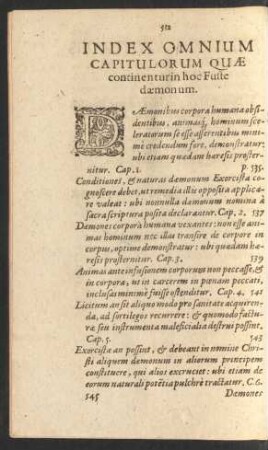 512
INDEX OMNIUM
CAPITULORUM QUÆ
continentur in hoc Fuste
dæmonum.
DÆmonibus corpora humana obsi-
dentibus, animasq́; hominum sce-
leratorum se esse asserentibus mini-
mè credendum fore, demonstratur;
ubi etiam quædam hæresis proster-
nitur. Cap. 1. p. 135.
Conditiones, & naturas dæmonum Exorcista co-
gnoscere debet, ut remedia illis opposita applica-
re valeat: ubi nonnulla dæmonum nomina à
sacra scriptura posita declarantur. Cap. 2, 137
Dæmones corpora humana vexantes: non esse ani-
mas hominum nec illas transire de corpore in
corpus, optimè demonstratur: ubi quædam hæ-
resis prosternitur. Cap. 3, 139
Animas ante infusionem corporum non peccasse, &
in corpora, ut in carcerem in pœnam peccati,
inclusas minimè fuisse ostenditur. Cap. 4, 141
Licitum an sit aliquo modo pro sanitate acquiren-
da, ad sortilegos recurrere: & quomodo factu-
ræ seu instrumenta malesicialia destrui possint,
Cap. 5. 143
Exorcistæ an possint, & debeant in nomine Chri-
sti aliquem dæmonum in aliorum principem
constituere, qui alios excruciet: ubi etiam de
eorum naturali potẽtia pulchrè tractatur, C. 6.
145 Dæmones